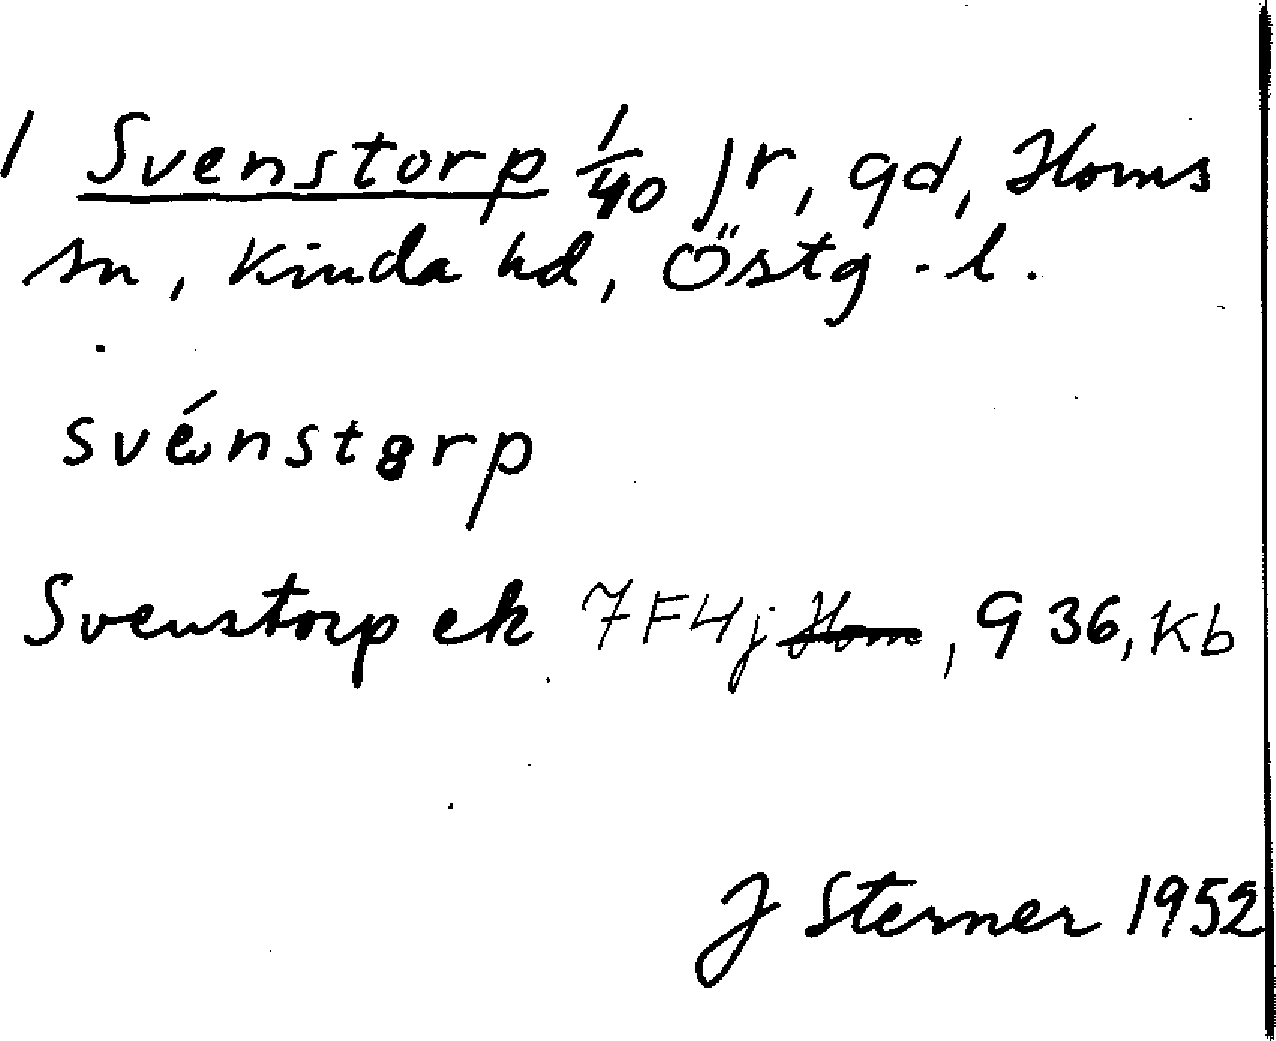 1 Svenstorp 1/40 fr, gd, Horns
sn, Kinda hd, Östg. l.
svénstorp
Svenstorp ek 7F4j Horn, 936, Kb
J Sterner 1952